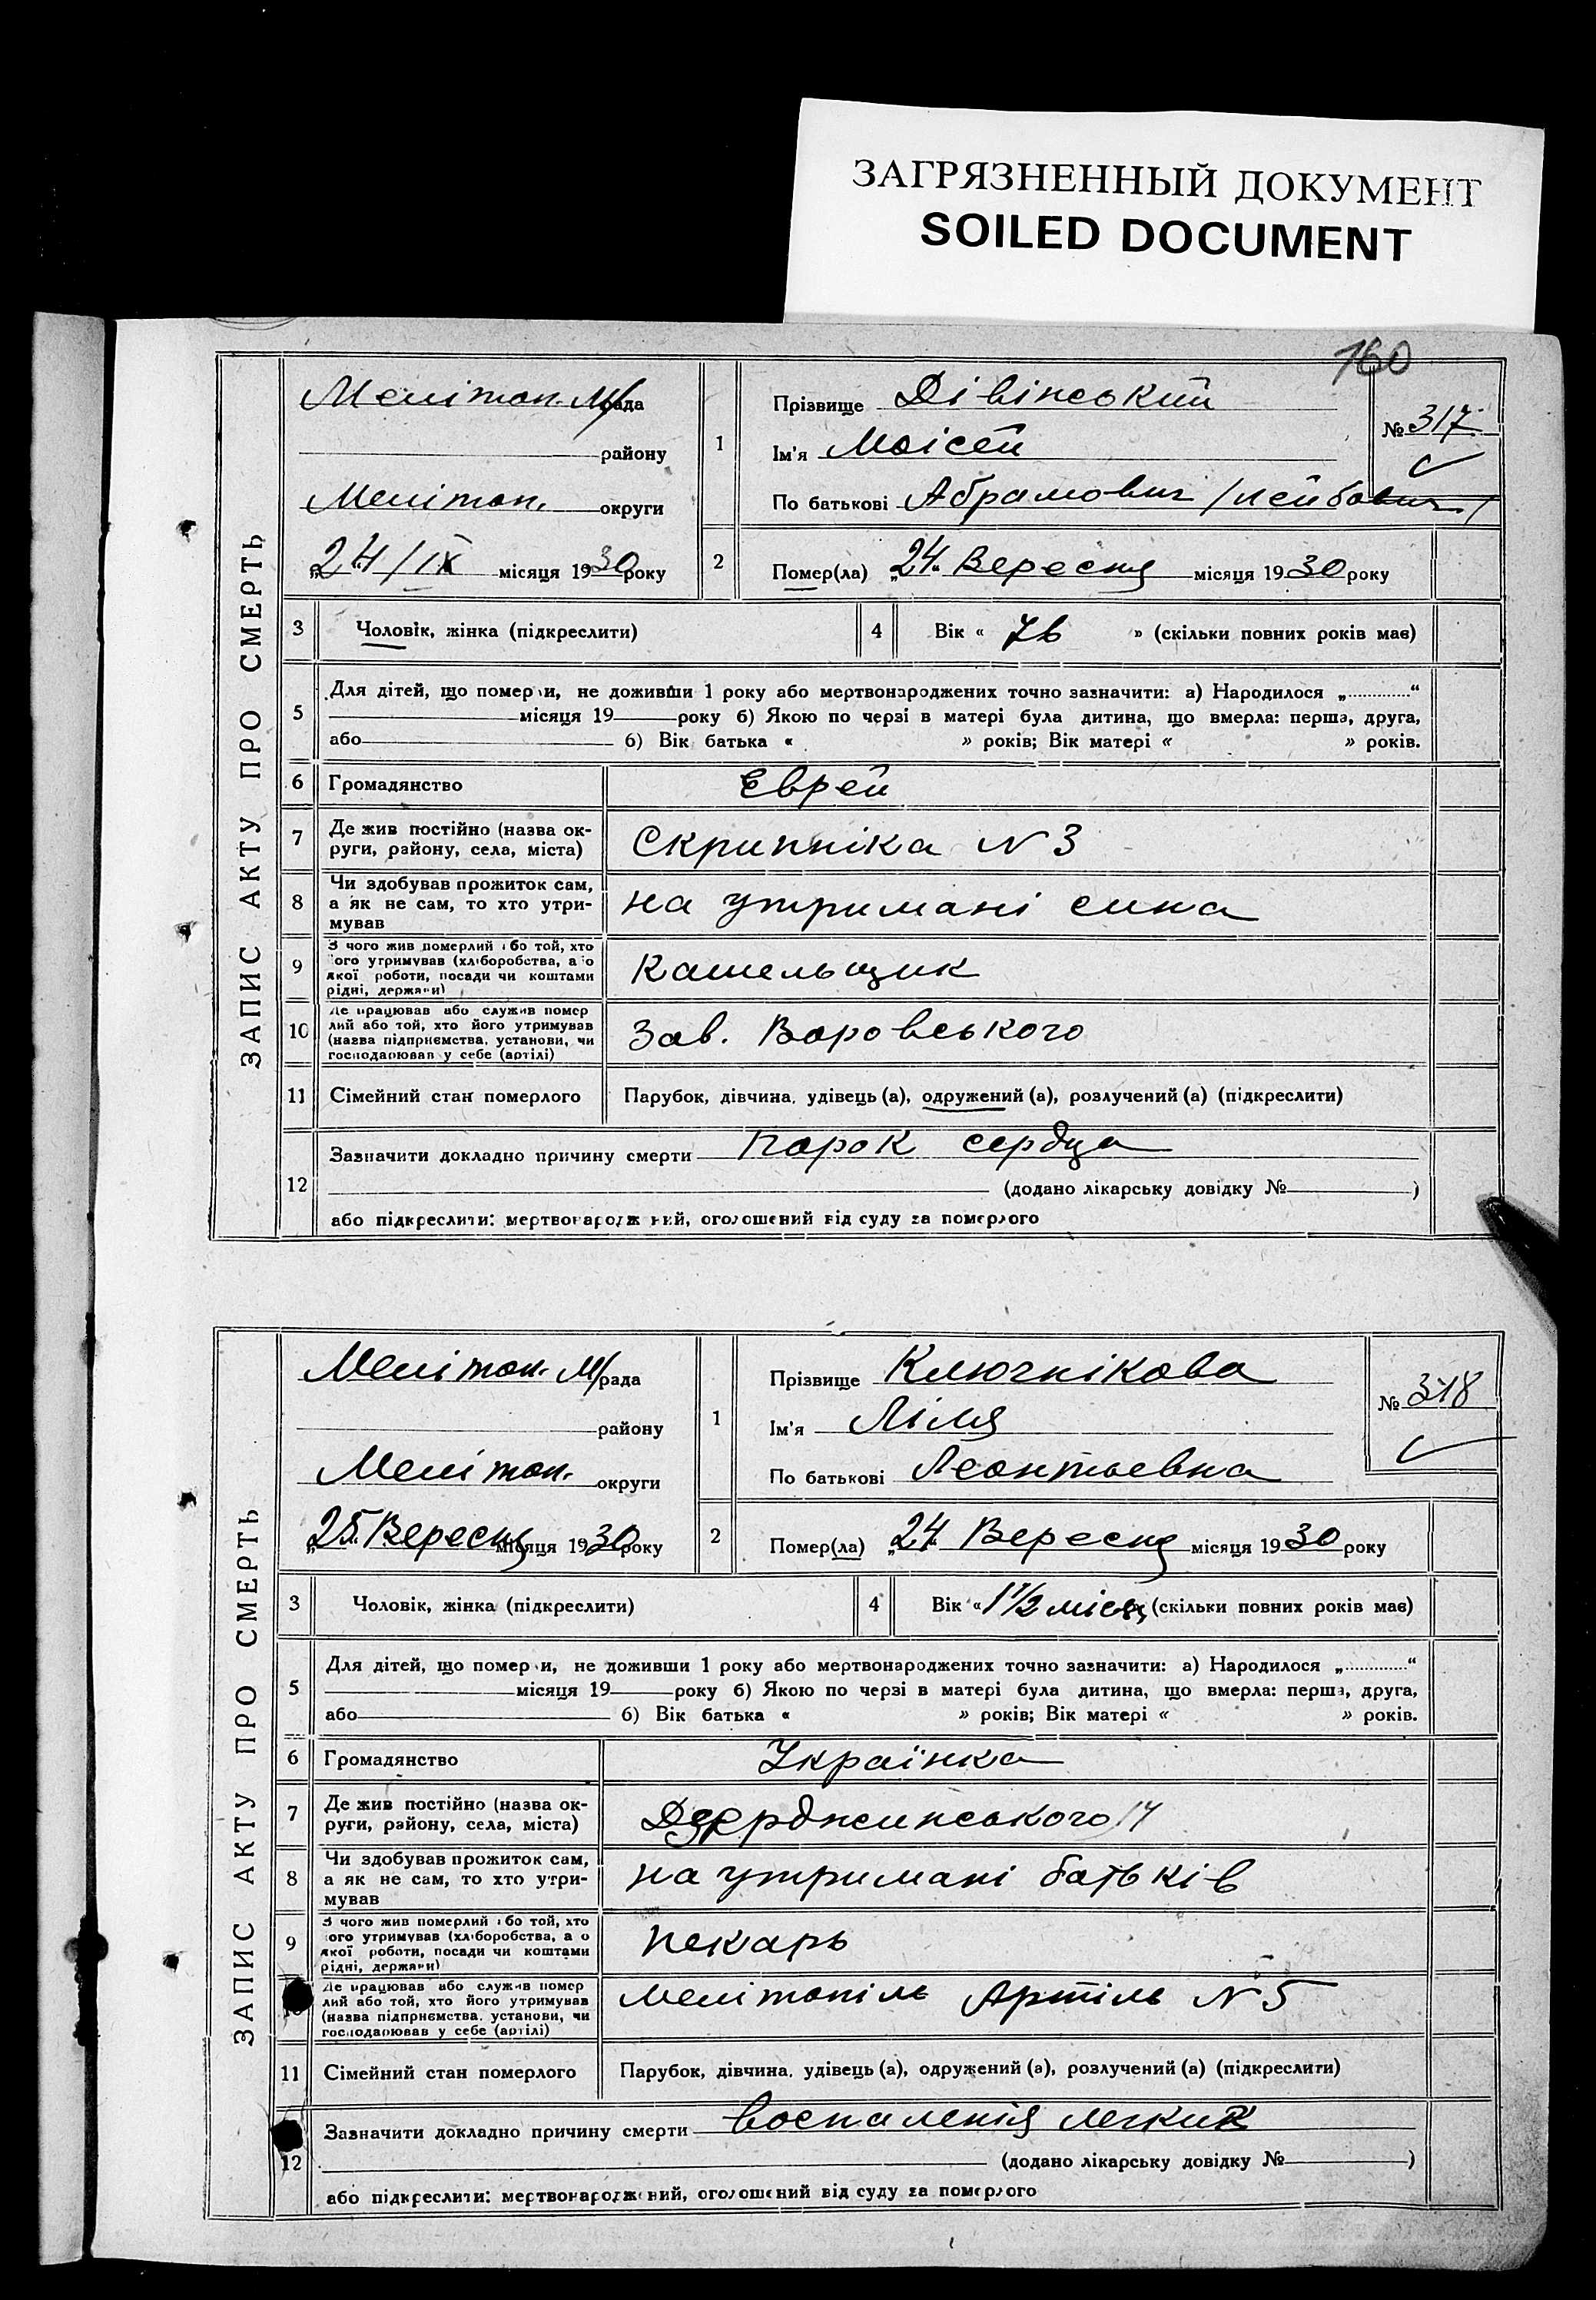 ЗАГРЯЗНЕННЫЙ ДОКУМЕНТ
SOILED DOCUMENT
160
ЗАПИС АКТУ ПРО СМЕРТЬ
Мелітоп. М/рада
району
Мелітоп. округи
„24/IX місяця 1930 року
1
Прізвище Дівінський
Ім'я Моісей
По батькові Абрамович /Лейбович/
№ 317
2
Помер(ла) „24“ Вересня місяця 1930 року
3 Чоловік, жінка (підкреслити)
4 Вік « 76 » (скільки повних років має)
5
Для дітей, що померли, не доживши 1 року або мертвонароджених точно зазначити: а) Народилося „............“
місяця 19 року б) Якою по черзі в матері була дитина, що вмерла: перша, друга,
або б) Вік батька « » років; Вік матері « » років.
6 Громадянство Єврей
7 Де жив постійно (назва ок-
руги, району, села, міста) Скрипніка N 3
8 Чи здобував прожиток сам,
а як не сам, то хто утри-
мував на утримані сина
9 З чого жив померлий або той, хто
його утримував (хліборобства, або
якої роботи, посади чи коштами
рідні, держави)
10 Де працював або служив помер
лий або той, хто його утримував
(назва підприємства, установи, чи
господарював у себе (артілі) Зав. Воровського
11 Сімейний стан померлого Парубок, дівчина, удівець (а), одружений (а), розлучений (а) (підкреслити)
12 Зазначити докладно причину смерти порок сердца
(додано лікарську довідку № )
або підкреслити: мертвонароджений, оголошений від суду за померлого
ЗАПИС АКТУ ПРО СМЕРТЬ
Мелітоп. М/рада
району
Мелітоп. округи
„25“ Вересня місяця 1930 року
1
Прізвище Ключнікова
Ім'я Ліля
По батькові Леонтьевна
№ 318
2
Помер(ла) „24“ Вересня місяця 1930 року
3 Чоловік, жінка (підкреслити)
4 Вік « 1 1/2 місяц (скільки повних років має)
5
Для дітей, що померли, не доживши 1 року або мертвонароджених точно зазначити: а) Народилося „............“
місяця 19 року б) Якою по черзі в матері була дитина, що вмерла: перша, друга,
або б) Вік батька « » років; Вік матері « » років.
6 Громадянство Українка
7 Де жив постійно (назва ок-
руги, району, села, міста) Дзерджинського 14
8 Чи здобував прожиток сам,
а як не сам, то хто утри-
мував на утримані батьків
9 З чого жив померлий або той, хто
його утримував (хліборобства, або
якої роботи, посади чи коштами
рідні, держави) пекарь
10 Де працював або служив помер
лий або той, хто його утримував
(назва підприємства, установи, чи
господарював у себе (артілі) Мелітопіль Артіль N 5
11 Сімейний стан померлого Парубок, дівчина, удівець (а), одружений (а), розлучений (а) (підкреслити)
12 Зазначити докладно причину смерти воспаленія легких
(додано лікарську довідку № )
або підкреслити: мертвонароджений, оголошений від суду за померлого